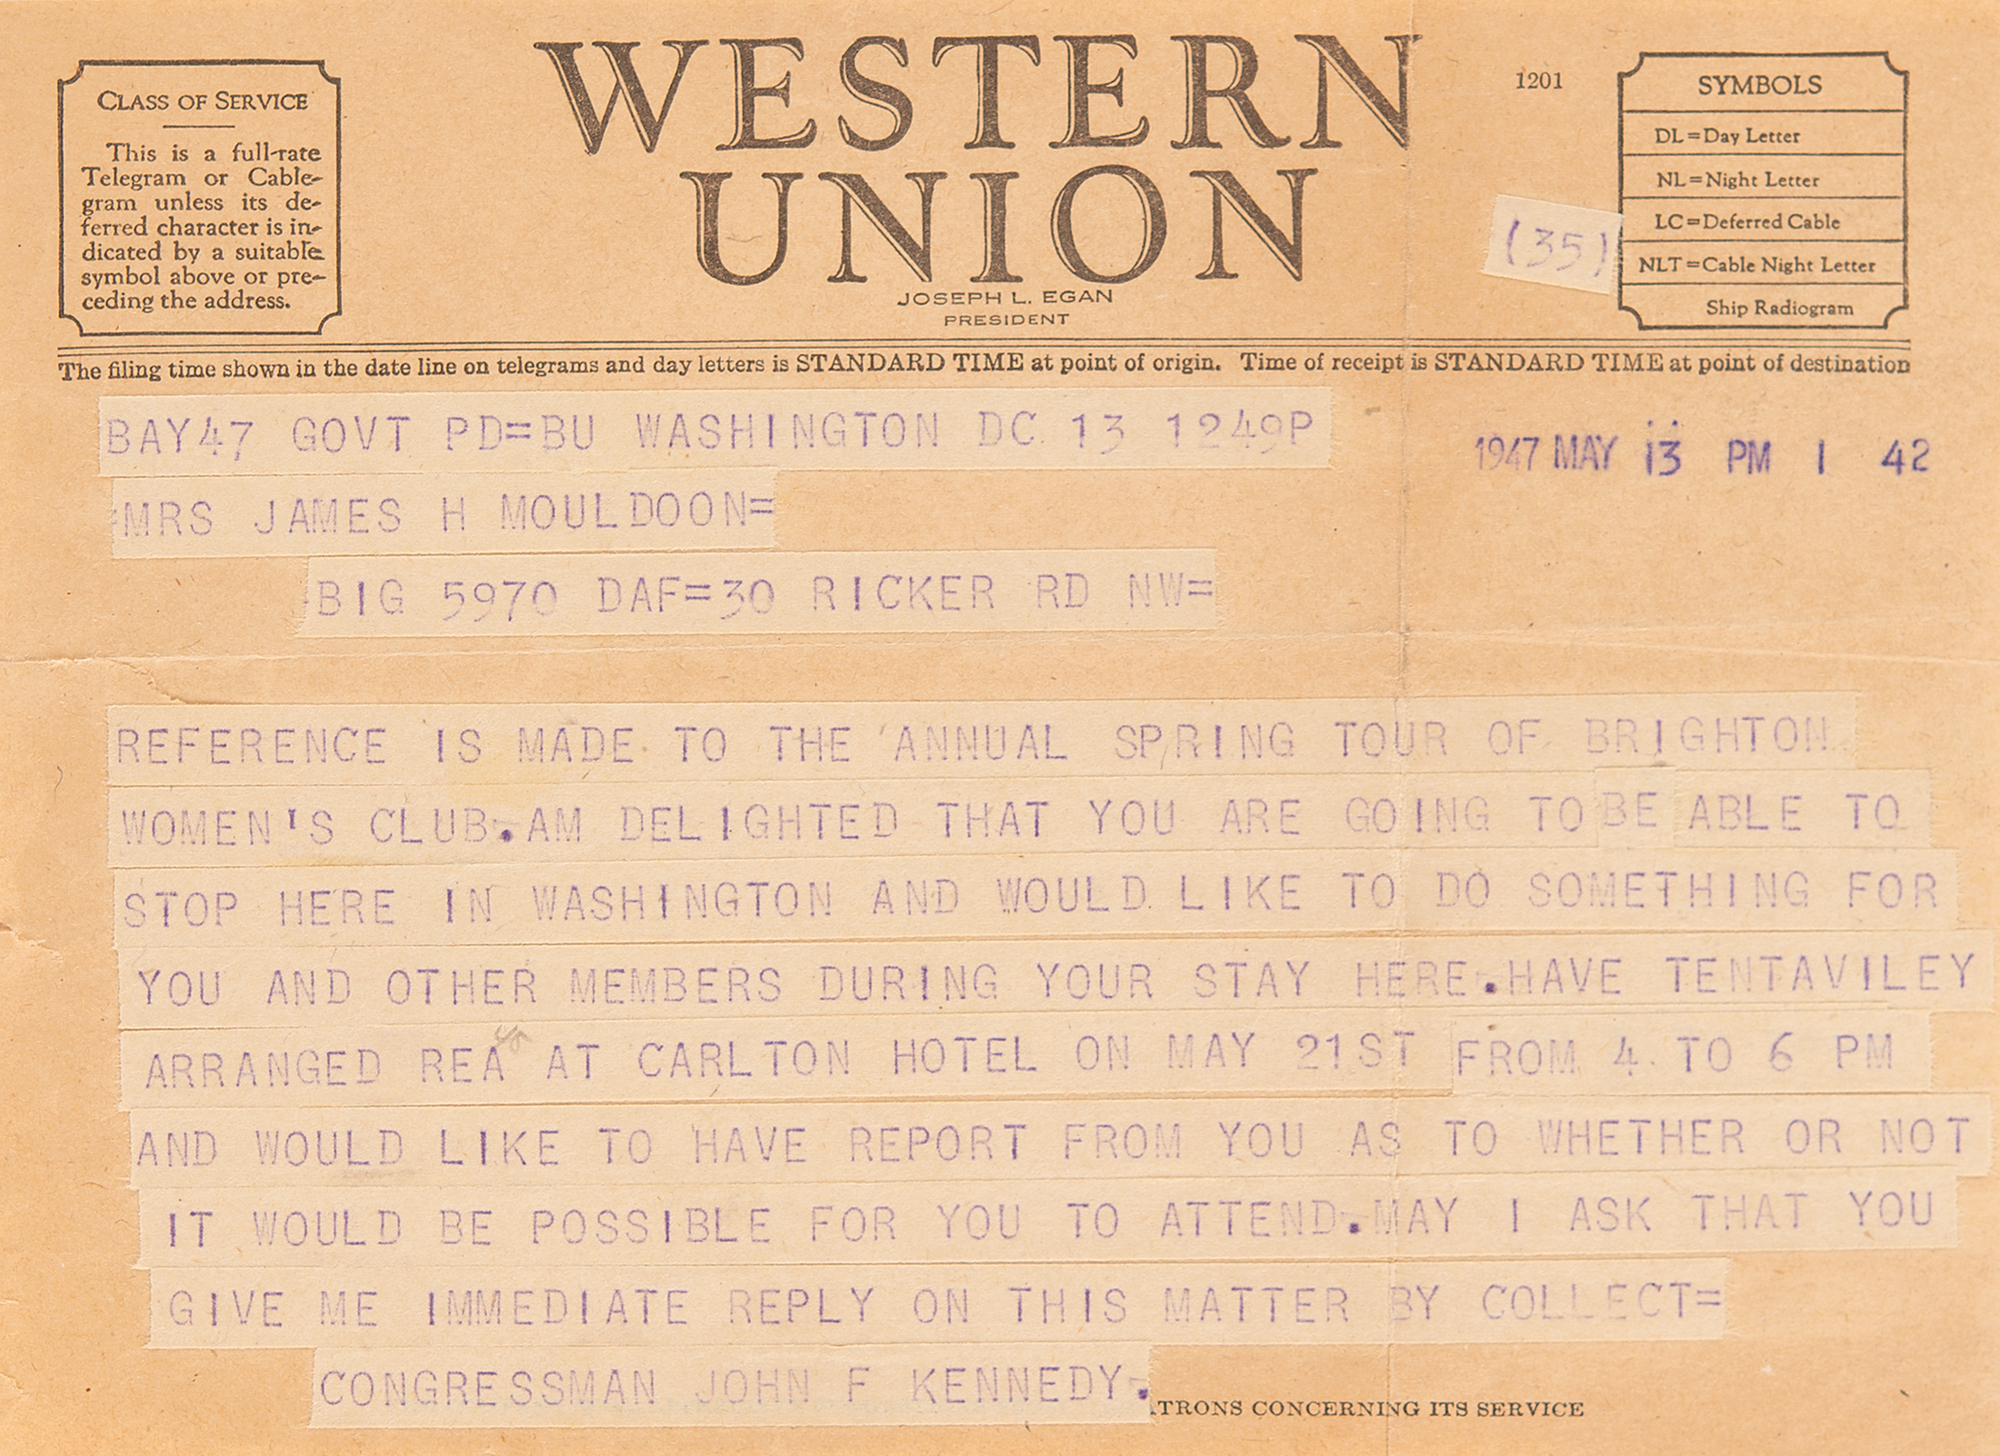 WESTERN
UNION
JOSEPH L. EGAN
PRESIDENT
1201
CLASS OF SERVICE
This is a full-rate
Telegram or Cable-
gram unless its de-
ferred character is in-
dicated by a suitable
symbol above or pre-
ceding the address.
SYMBOLS
DL=Day Letter
NL=Night Letter
LC=Deferred Cable
NLT=Cable Night Letter
Ship Radiogram
(35)
The filing time shown in the date line on telegrams and day letters is STANDARD TIME at point of origin. Time of receipt is STANDARD TIME at point of destination
BAY47 GOVT PD=BU WASHINGTON DC 13 1249P
1947 MAY 13 PM 1 42
:MRS JAMES H MOULDOON=
BIG 5970 DAF=30 RICKER RD NW=
REFERENCE IS MADE TO THE ANNUAL SPRING TOUR OF BRIGHTON
WOMEN'S CLUB.AM DELIGHTED THAT YOU ARE GOING TO BE ABLE TO
STOP HERE IN WASHINGTON AND WOULD LIKE TO DO SOMETHING FOR
YOU AND OTHER MEMBERS DURING YOUR STAY HERE.HAVE TENTAVILEY
ARRANGED REA AT CARLTON HOTEL ON MAY 21ST FROM 4 TO 6 PM
AND WOULD LIKE TO HAVE REPORT FROM YOU AS TO WHETHER OR NOT
IT WOULD BE POSSIBLE FOR YOU TO ATTEND.MAY I ASK THAT YOU
GIVE ME IMMEDIATE REPLY ON THIS MATTER BY COLLECT=
CONGRESSMAN JOHN F KENNEDY.
ATRONS CONCERNING ITS SERVICE